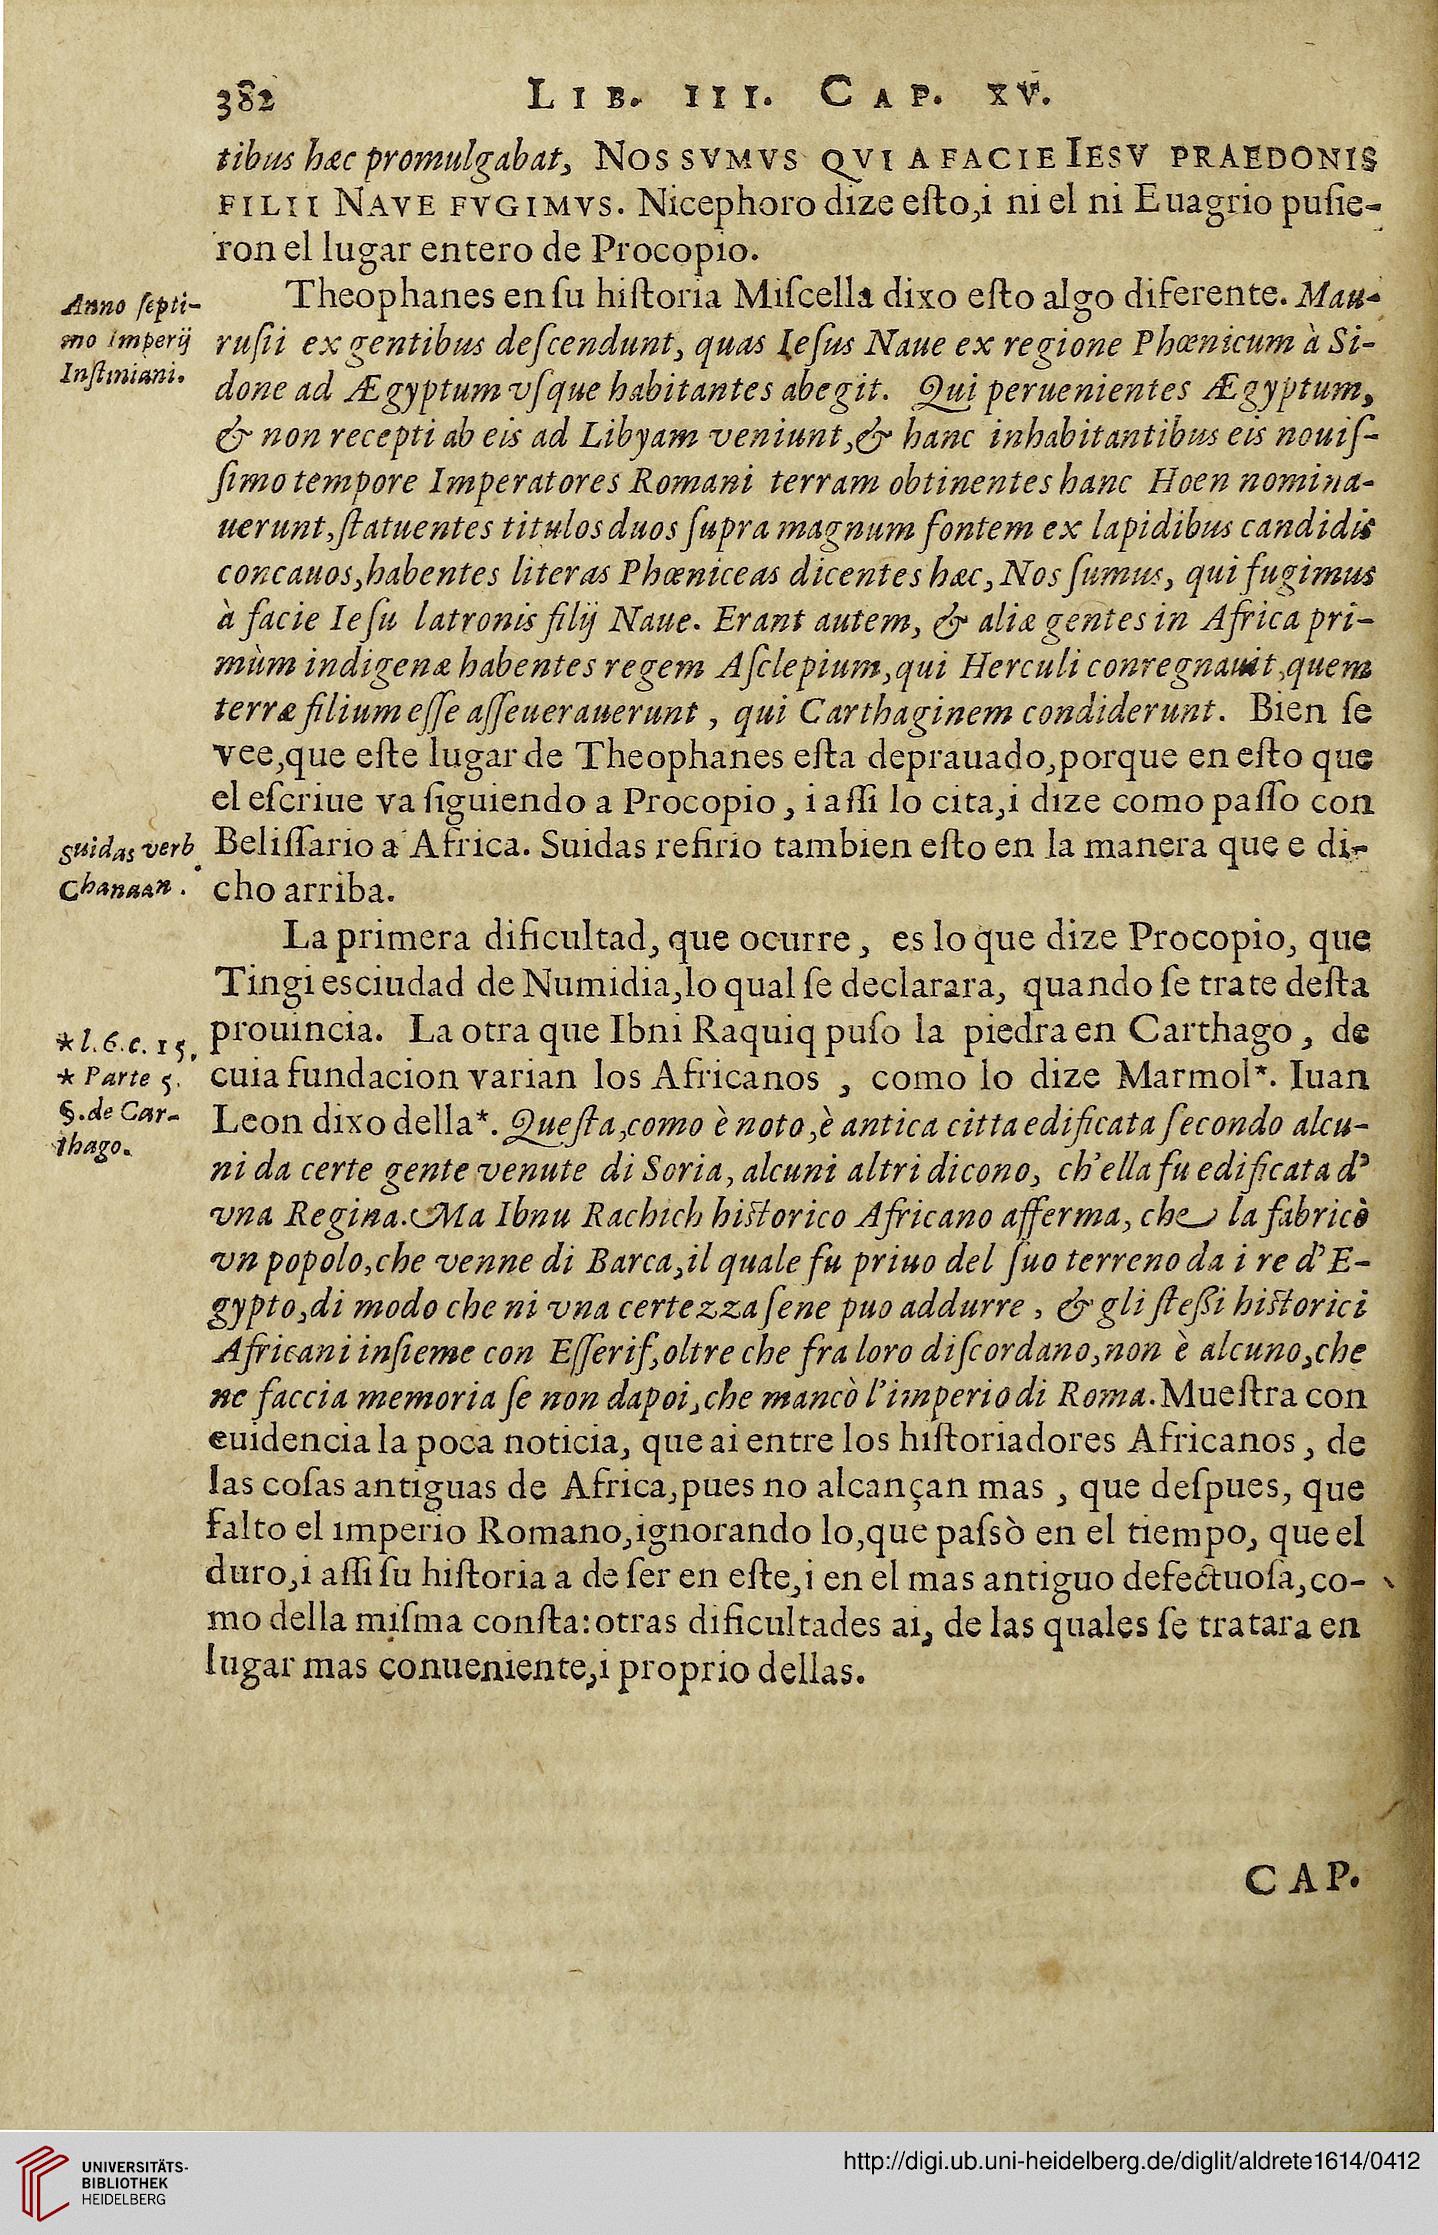 382 LIB. III. CAP. XV.
tibus hæc promulgabat, NOS SVMVS QVI A FACIE IESV PRAEDONIS
FILII NAVE FVGIMVS. Nicephoro dize eſto,i ni el ni Euagrio puſie-
ron el lugar entero de Procopio.
Anno ſepti-
mo imperij
Iuſtiniani.
Theophanes en ſu hiſtoria Miſcella dixo eſto algo diferente. Mau-
ruſii ex gentibus deſcendunt, quas Ieſus Naue ex regione Phœnicum à Si-
done ad Ægyptum vſque habitantes abegit. Qui peruenientes Ægyptum,
& non recepti ab eis ad Libyam veniunt,& hanc inhabitantibus eis nouiſ-
ſimo tempore Imperatores Romani terram obtinentes hanc Hoen nomina-
uerunt,ſtatuentes titulos duos ſupra magnum fontem ex lapidibus candidis
concauos,habentes literas Phœniceas dicentes hæc,Nos ſumus, qui fugimus
à facie Ieſu latronis filij Naue. Erant autem, & aliæ gentes in Africa pri-
mùm indigenæ habentes regem Aſclepium,qui Herculi conregnauit,quem
terræ filium eſſe aſſeuerauerunt , qui Carthaginem condiderunt. Bien ſe
vee,que eſte lugar de Theophanes eſta deprauado,porque en eſto que
el eſcriue va ſiguiendo a Procopio , i aſſi lo cita,i dize como paſſo con
Suidas verb
Chanaan.
Beliſſario a Africa. Suidas refirio tambien eſto en la manera que e di-
cho arriba.
La primera dificultad, que ocurre , es lo que dize Procopio, que
Tingi es ciudad de Numidia,lo qual ſe declarara, quando ſe trate deſta
* l. 6. c. 15.
* Parte 5.
§. de Car-
thago.
prouincia. La otra que Ibni Raquiq puſo la piedra en Carthago , de
cuia fundacion varian los Africanos , como lo dize Marmol*. Iuan
Leon dixo della*. Queſta,como è noto,è antica citta edificata ſecondo alcu-
ni da certe gente venute di Soria, alcuni altri dicono, ch'ella fu edificata d'
vna Regina. Ma Ibnu Rachich hiſtorico Africano afferma, che la fabricò
vn popolo,che venne di Barca,il quale fu priuo del ſuo terreno da i re d'E-
gypto,di modo che ni vna certezza ſene puo addurre , & gli ſteßi hiſtorici
Africani inſieme con Eſſeriſ,oltre che fra loro diſcordano,non è alcuno,che
ne faccia memoria ſe non dapoi,che mancò l'imperio di Roma. Mueſtra con
euidencia la poca noticia, que ai entre los hiſtoriadores Africanos , de
las coſas antiguas de Africa,pues no alcançan mas , que deſpues, que
falto el imperio Romano,ignorando lo,que paſsò en el tiempo, que el
duro,i aſſi ſu hiſtoria a de ſer en eſte,i en el mas antiguo defectuoſa,co-
mo della miſma conſta:otras dificultades ai, de las quales ſe tratara en
lugar mas conueniente,i proprio dellas.
CAP.
UNIVERSITÄTS-
BIBLIOTHEK
HEIDELBERG
http://digi.ub.uni-heidelberg.de/diglit/aldrete1614/0412